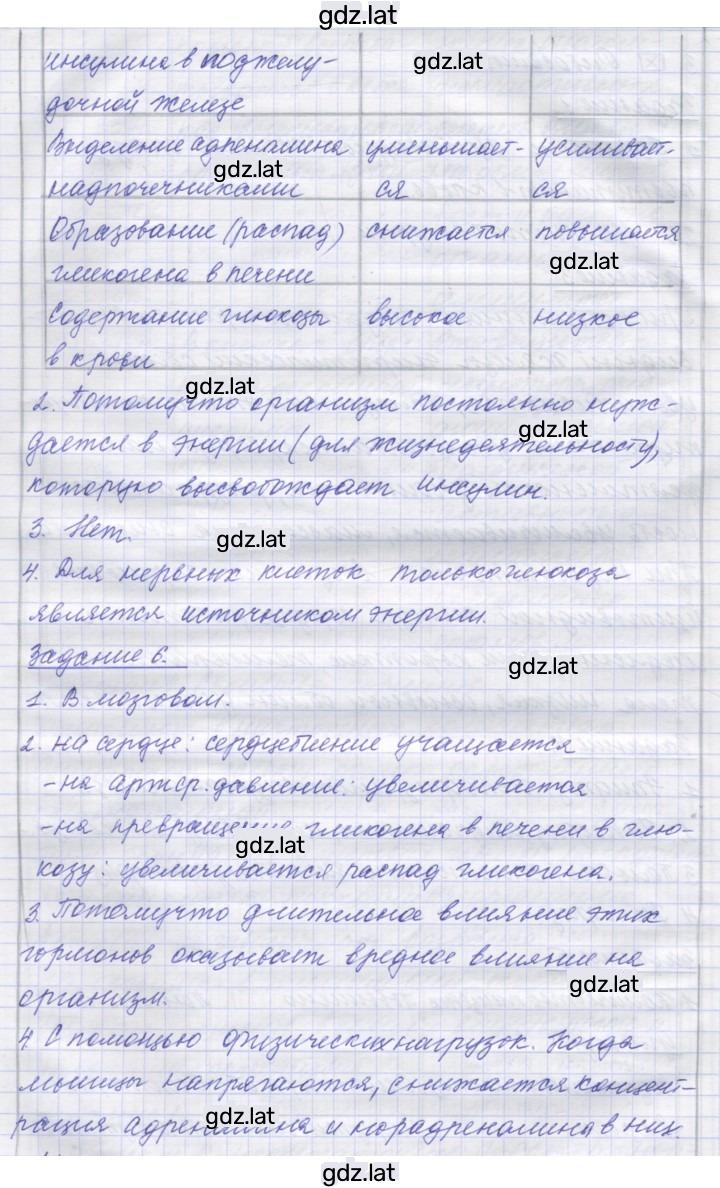 gdz.lat
инсулина в поджелу-
gdz.lat
дочной железе
Выделение адреналина уменьшает- усиливает-
gdz.lat
надпочечниками ся ся
Образование (распад) снижается повышается
gdz.lat
гликогена в печени
Содержание глюкозы высокое низкое
в крови
gdz.lat
2. Потомучто организм постоянно нуж-
gdz.lat
дается в энергии (для жизнедеятельности),
которую высвобождает инсулин.
3. Нет.
gdz.lat
4. Для нервных клеток только глюкоза
является источником энергии.
Задание 6.
gdz.lat
1. В мозговом.
2. на сердце: сердцебиение учащается
- на артер. давление: увеличивается
- на превращение гликогена в печени в глю-
gdz.lat
козу: увеличивается распад гликогена.
3. Потомучто длительное влияние этих
гормонов оказывает вредное влияние на
gdz.lat
организм.
4 С помощью физических нагрузок. Когда
мышцы напрягаются, снижается концент-
gdz.lat
рация адреналина и норадреналина в них.
gdz.lat